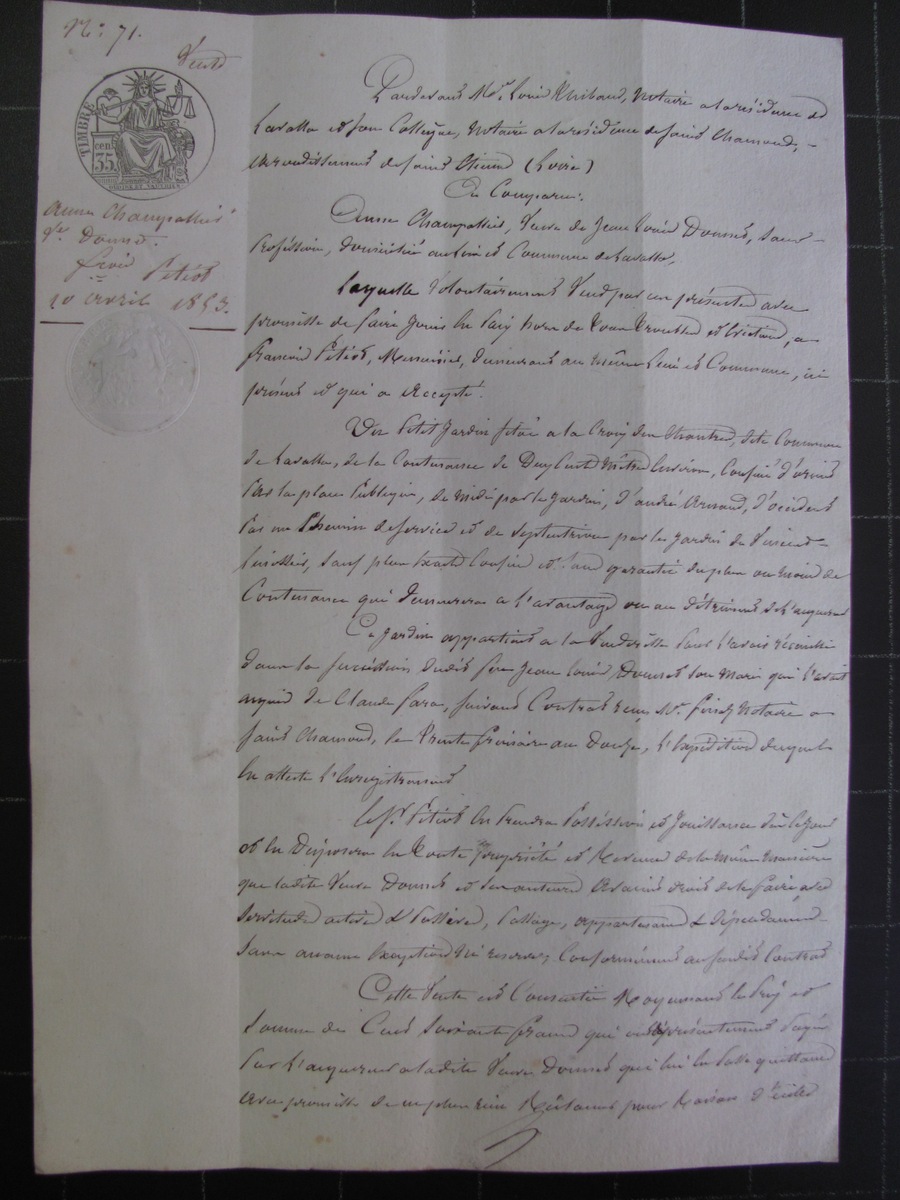 N°: 71.
Vente
TIMBRE
35 cent
Anne Champallier
Vve Donnet
Petiot
10 avril 1853.
Pardevant Me. Louis Thibaud, Notaire a la résidence de
Lavalla et Jean Notaire a la résidence de Saint Chamond,
Arrondissement de Saint Etienne (Loire)
A Comparu:
Anne Champallier, Veuve de Jean Louis Donnet, sans
Profession, domiciliée au lieu et Commune de Lavalla,
Laquelle Volontairement Vend par ces présentes avec
promesse de faire Jouir en paix hors de tous troubles et évictions, a
François Petiot, Menuisier, demeurant au même lieu et Commune, ici
présent et qui a Accepté.
Un Petit Jardin situé a la Croix dite Commune
de Lavalla, de la Contenance de Deux Cents Mètres Environ, Confiné d'orient
Par la place Publique, de midi par le Jardin, d'andré Arnaud, d'occident
Par un Chemin de service et de Septentrion par le Jardin de Vincent
sauf plus exacts Confins et sans garantie du plus ou moins de
Contenance qui demeurera a l'avantage ou au détriment de l'acquéreur
Ce Jardin appartient a la Venderesse pour l'avoir recueilli
dans la succession dudit feu Jean Louis Donnet son Mari qui l'avait
acquis de Claude Fara, suivant Contrat reçu Me. Notaire a
Saint Chamond, le Trente Frimaire an Douze, l'Expédition duquel
en atteste l'Enregistrement
Le Sr. Petiot en Prendra Possession et Jouissance dès ce Jour
et en Disposera en toute propriété et Revenu de la même Manière
que ladite Veuve Donnet et ses auteurs Avaient droit de le faire avec
Servitudes actives & Passives, Passage, appartenances & dépendances
Sans aucune Exception Ni réserve, Conformément au susdit Contrat
Cette Vente est Consentie Moyennant le Prix et
Somme de Cent Soixante francs qui a été présentement Payée
Par l'acquéreur a ladite Veuve Donnet qui lui en Passe quittance
Avec promesse de ne plus rien Réclamer pour Raison d'icelle